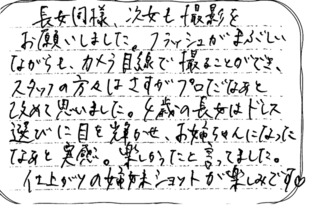 長女同様、次女も撮影を
お願いしました。フラッシュがまぶしい
ながらも、カメラ目線で撮ることができ、
スタッフの方々はさすがプロだなあと
改めて思いました。4歳の長女はドレス
選びに目を輝かせ、お姉ちゃんになった
なぁと実感。楽しかったと言ってました。
仕上がりの姉妹ショットが楽しみです♡